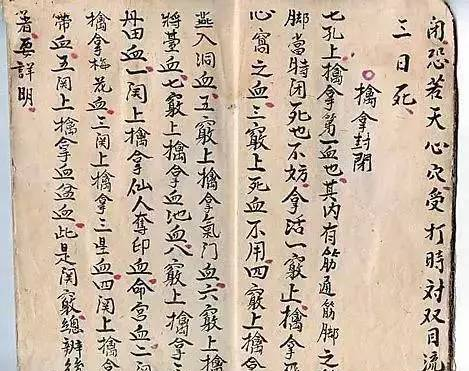 閉恐若天心穴受打時対双目流
三日死
擒拿封閉
七孔上擒拿第一血也其内有筋通筋脚之
脚當時闭死也不妨拿活一竅上擒拿
心窩之血三竅上死血不用四竅上擒拿
燕入洞血五竅上擒拿氣门血六竅上擒
將臺血七竅上擒拿血池血八竅上擒拿
丹田血一関上擒拿仙人奪印血命宫血二関
擒拿梅花血三関上擒拿三星血四関上擒
帶血五関上擒拿血盆血此是関竅總辨
者要詳明